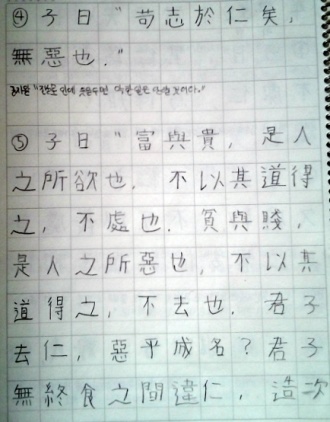 ④ 子曰 "苟志於仁矣,
無惡也."
⑤ 子曰 "富與貴, 是人
之所欲也. 不以其道得
之, 不處也. 貧與賤,
是人之所惡也, 不以其
道得之, 不去也. 君子
去仁, 惡乎成名? 君子
無終食之間違仁, 造次